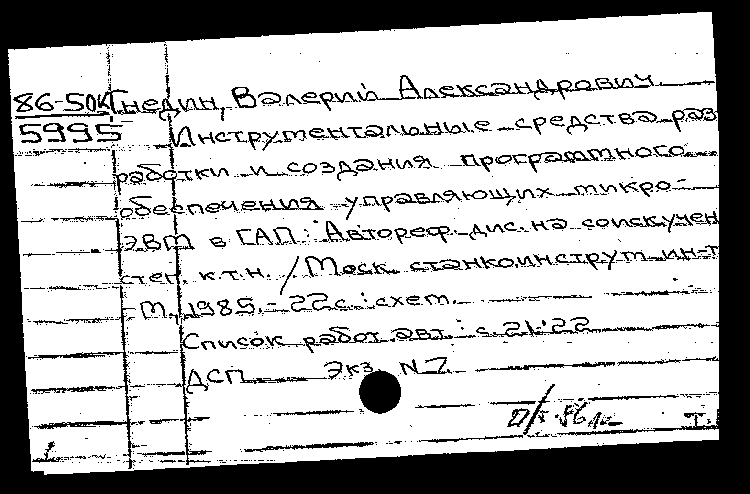 86-50К Гнедин, Валерий Александрович.
5995 Инструментальные средства раз
работки и создания программного
обеспечения управляющих микро-
ЭВМ в ГАП : Автореф. дис. на соиск. учен
степ. к.т.н. / Моск. станкоинструм. ин-т
М., 1985. - 22 с. : схем.
Список работ авт. : с. 21-22
ДСП Экз. N 7
Т.